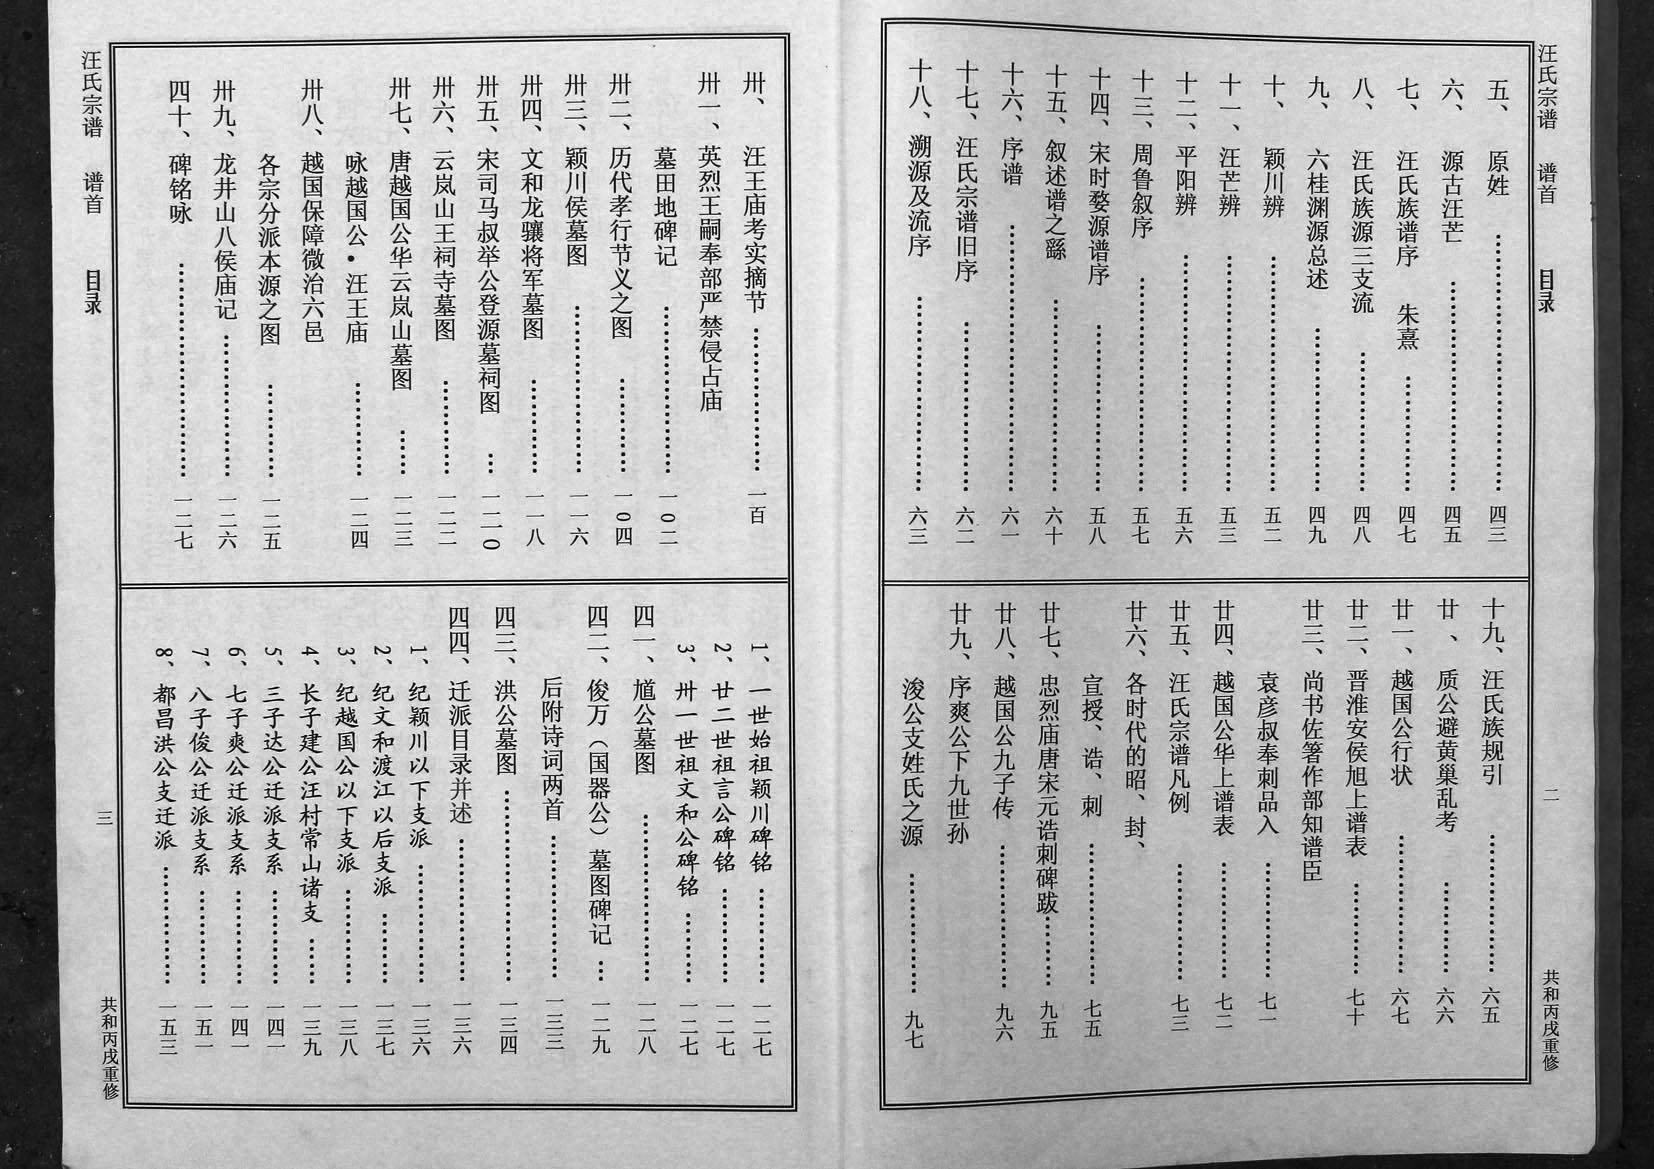 汪氏宗谱 谱首 目录 二 共和丙戌重修
五、原姓……四三
六、源古汪芒……四五
七、汪氏族谱序 朱熹……四七
八、汪氏族源三支流……四八
九、六桂渊源总述……四九
十、颖川辨……五二
十一、汪芒辨……五三
十二、平阳辨……五六
十三、周鲁叙序……五七
十四、宋时婺源谱序……五八
十五、叙述谱之繇……六十
十六、序谱……六一
十七、汪氏宗谱旧序……六二
十八、溯源及流序……六三
十九、汪氏族规引……六五
廿、质公避黄巢乱考……六六
廿一、越国公行状……六七
廿二、晋淮安侯旭上谱表……七十
廿三、尚书佐箸作部知谱臣
袁彦叔奉刺品入……七一
廿四、越国公华上谱表……七二
廿五、汪氏宗谱凡例……七三
廿六、各时代的昭、封、
宣授、诰、刺……七五
廿七、忠烈庙唐宋元诰刺碑跋……九五
廿八、越国公九子传……九六
廿九、序爽公下九世孙
浚公支姓氏之源……九七
卅、汪王庙考实摘节……一百
卅一、英烈王嗣奉部严禁侵占庙
墓田地碑记……一0二
卅二、历代孝行节义之图……一0四
卅三、颖川侯墓图……一一六
卅四、文和龙骧将军墓图……一一八
卅五、宋司马叔举公登源墓祠图…一二0
卅六、云岚山王祠寺墓图……一二二
卅七、唐越国公华云岚山墓图……一二三
咏越国公•汪王庙……一二四
卅八、越国保障微治六邑
各宗分派本源之图……一二五
卅九、龙井山八侯庙记……一二六
四十、碑铭咏……一二七
1、一世始祖颖川碑铭……一二七
2、廿二世祖言公碑铭……一二七
3、卅一世祖文和公碑铭……一二七
四一、馗公墓图……一二八
四二、俊万（国器公）墓图碑记…一二九
后附诗词两首……一三三
四三、洪公墓图……一三四
四四、迁派目录并述……一三六
1、纪颖川以下支派……一三六
2、纪文和渡江以后支派……一三七
3、纪越国公以下支派……一三八
4、长子建公汪村常山诸支……一三九
5、三子达公迁派支系……一四一
6、七子爽公迁派支系……一四一
7、八子俊公迁派支系……一五一
8、都昌洪公支迁派……一五三
汪氏宗谱 谱首 目录 三 共和丙戌重修